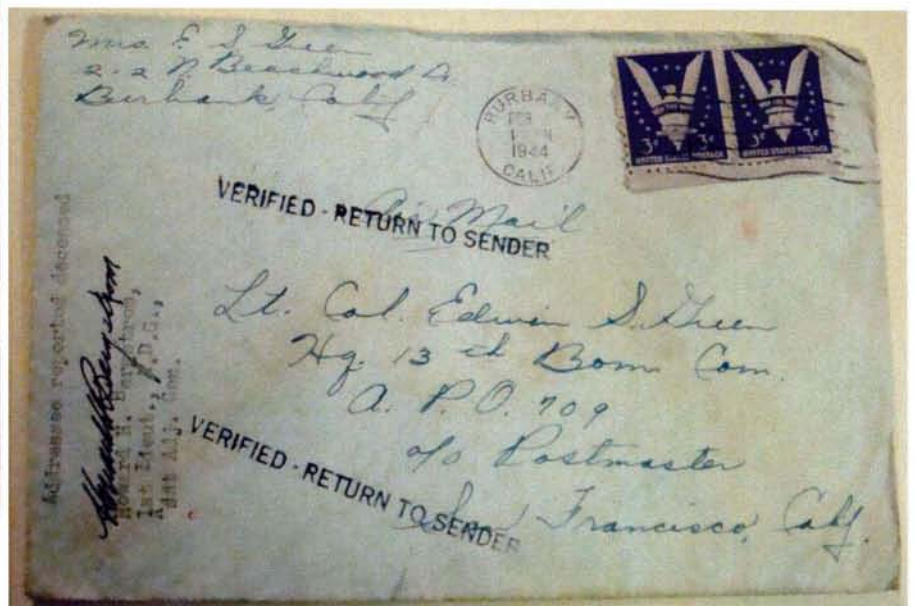 Mrs. E. S. Green
2-2 N. Beachwood Dr.
Burbank, Calif
BURBANK
FEB
1944
CALIF
3¢ 3¢
UNITED STATES POSTAGE
3¢ 3¢
UNITED STATES POSTAGE
VERIFIED - RETURN TO SENDER
Air Mail
Lt. Col. Edwin S. Green
Hq. 13th Bom. Com.
A. P. O. 709
c/o Postmaster
San Francisco, Calif.
VERIFIED - RETURN TO SENDER
Addressee reported deceased
Howard H.
1st Lieut., A.G.D.,